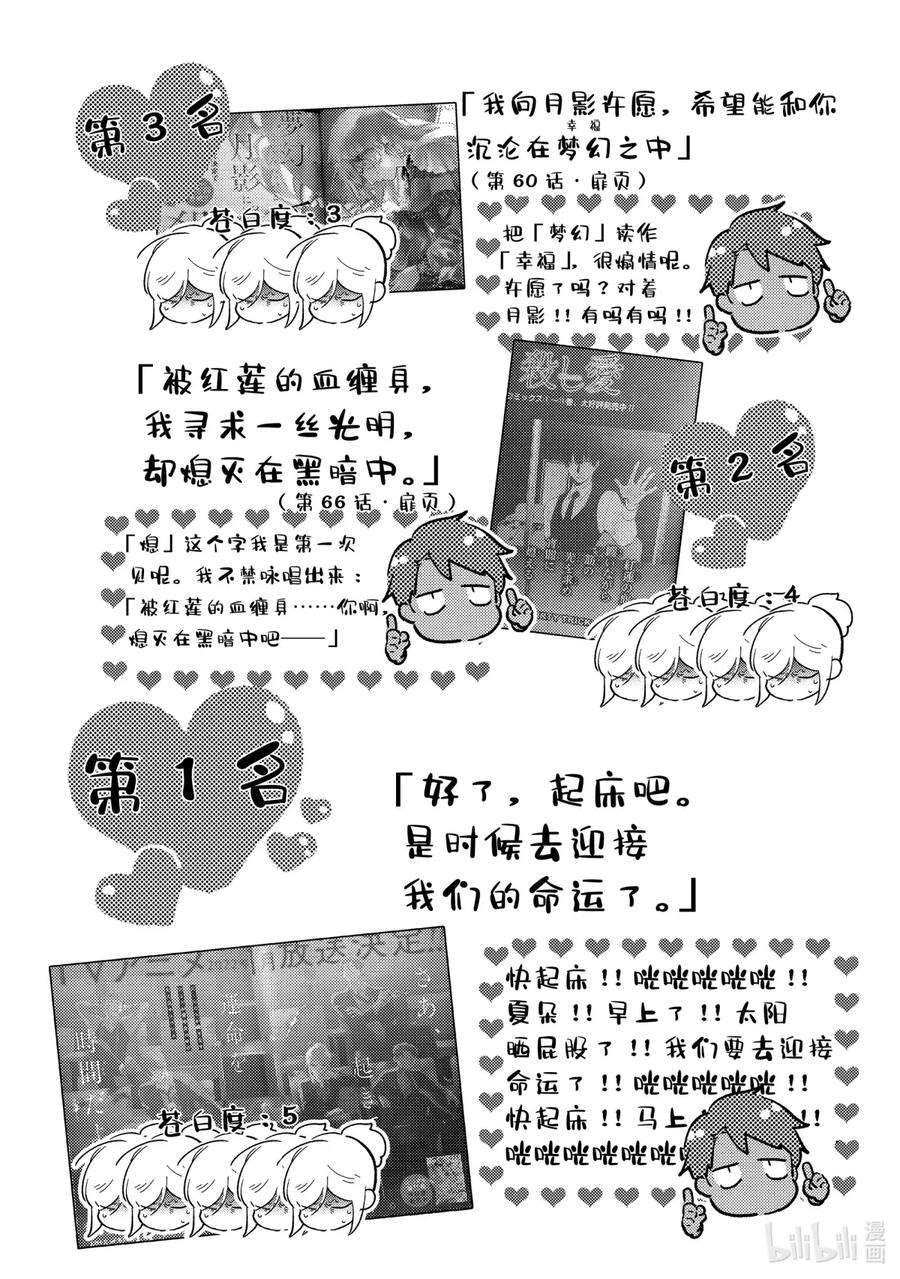 第3名
「我向月影许愿，希望能和你
幸福
沉沦在梦幻之中」
（第60话·扉页）
夢幻
月影
苍白度：3
把「梦幻」读作
「幸福」，很煽情呢。
许愿了吗？对着
月影！！有吗有吗！！
「被红莲的血缠身，
我寻求一丝光明，
却熄灭在黑暗中。」
（第66话·扉页）
殺し愛
第2名
苍白度：4
「熄」这个字我是第一次
见呢。我不禁咏唱出来：
「被红莲的血缠身……你啊，
熄灭在黑暗中吧——」
第1名
「好了，起床吧。
是时候去迎接
我们的命运了。」
TVアニメ2022年
放送決定!!
さあ、
起き
運命を
時間だ
苍白度：5
快起床！！咣咣咣咣咣！！
夏朵！！早上了！！太阳
晒屁股了！！我们要去迎接
命运了！！咣咣咣咣咣！！
快起床！！马上
！！
咣咣咣咣咣咣
bilibili 漫画